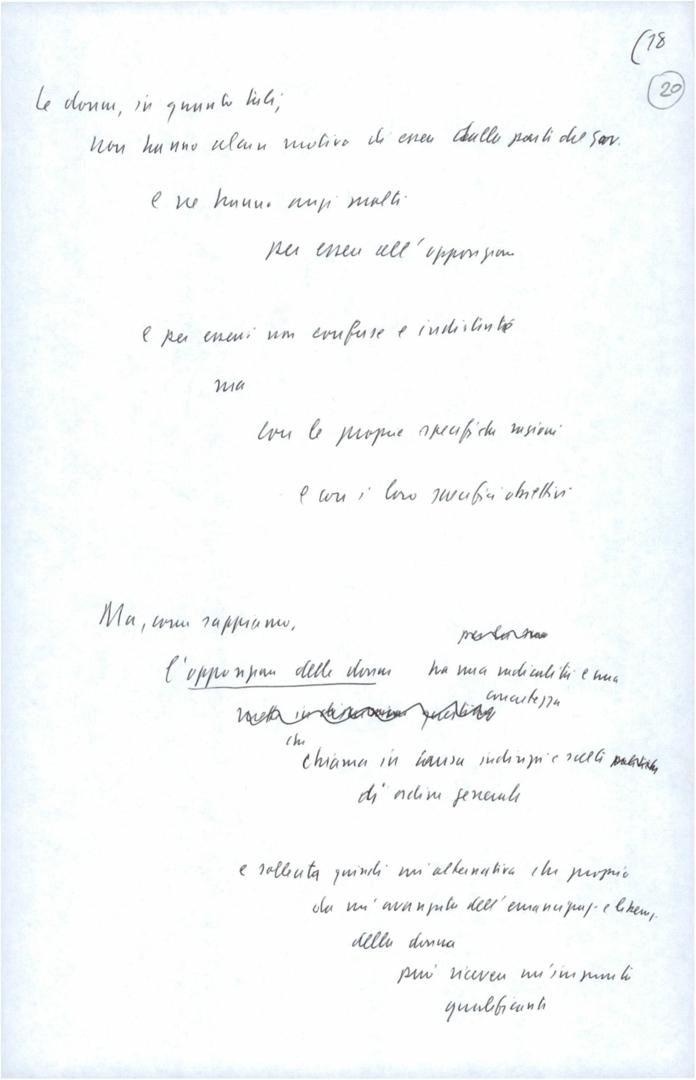 (18
20
Le donne, in quanto tali,
non hanno alcun motivo di essere dalla parte del gov.
e ne hanno anzi molti
per essere all'opposizione
e per esserci non confuse e indistinte
ma
con le proprie specifiche ragioni
e con i loro specifici obiettivi
Ma, come sappiamo,
l'opposizione delle donne ha una radicalità e una
concretezza
che
chiama in causa indirizzi e scelte
di ordine generale
e sollecita quindi un'alternativa che proprio
da un'avanzata dell'emancipaz. e liberaz.
della donna
può ricevere un'impronta
qualificante